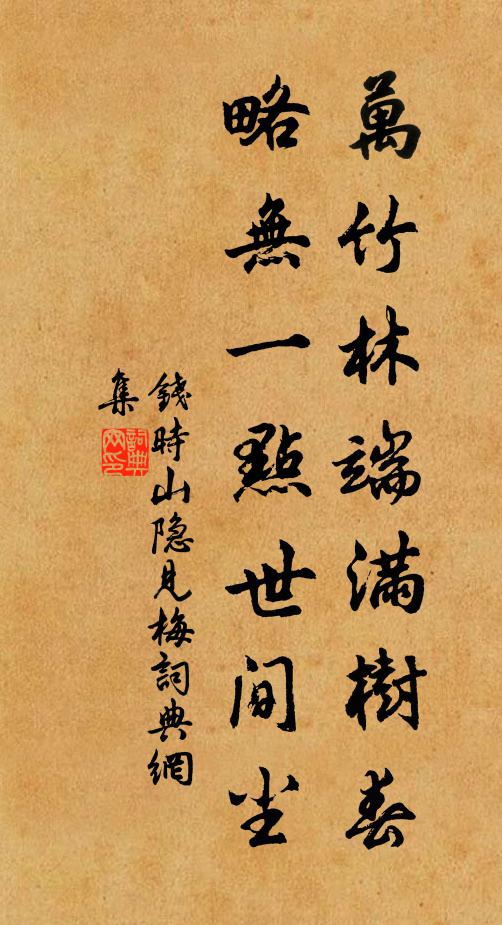 萬竹林端满樹春
略無一點世间尘
錢時山隐見梅詞典網
集
詞典
网印